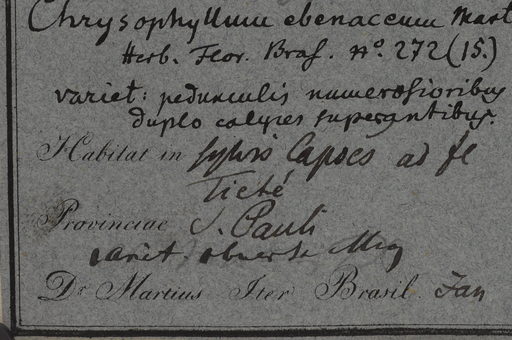 Chrysophyllum ebenaceum Mart
Herb. Flor. Bras. No. 272 (15.)
variet: pedunculis numerosioribus
duplo calyces superantibus.
Habitat in sylvis Capoes ad
Tieté
Provinciae S. Pauli
variet.
Dr. Martius Iter Brasil. Jan